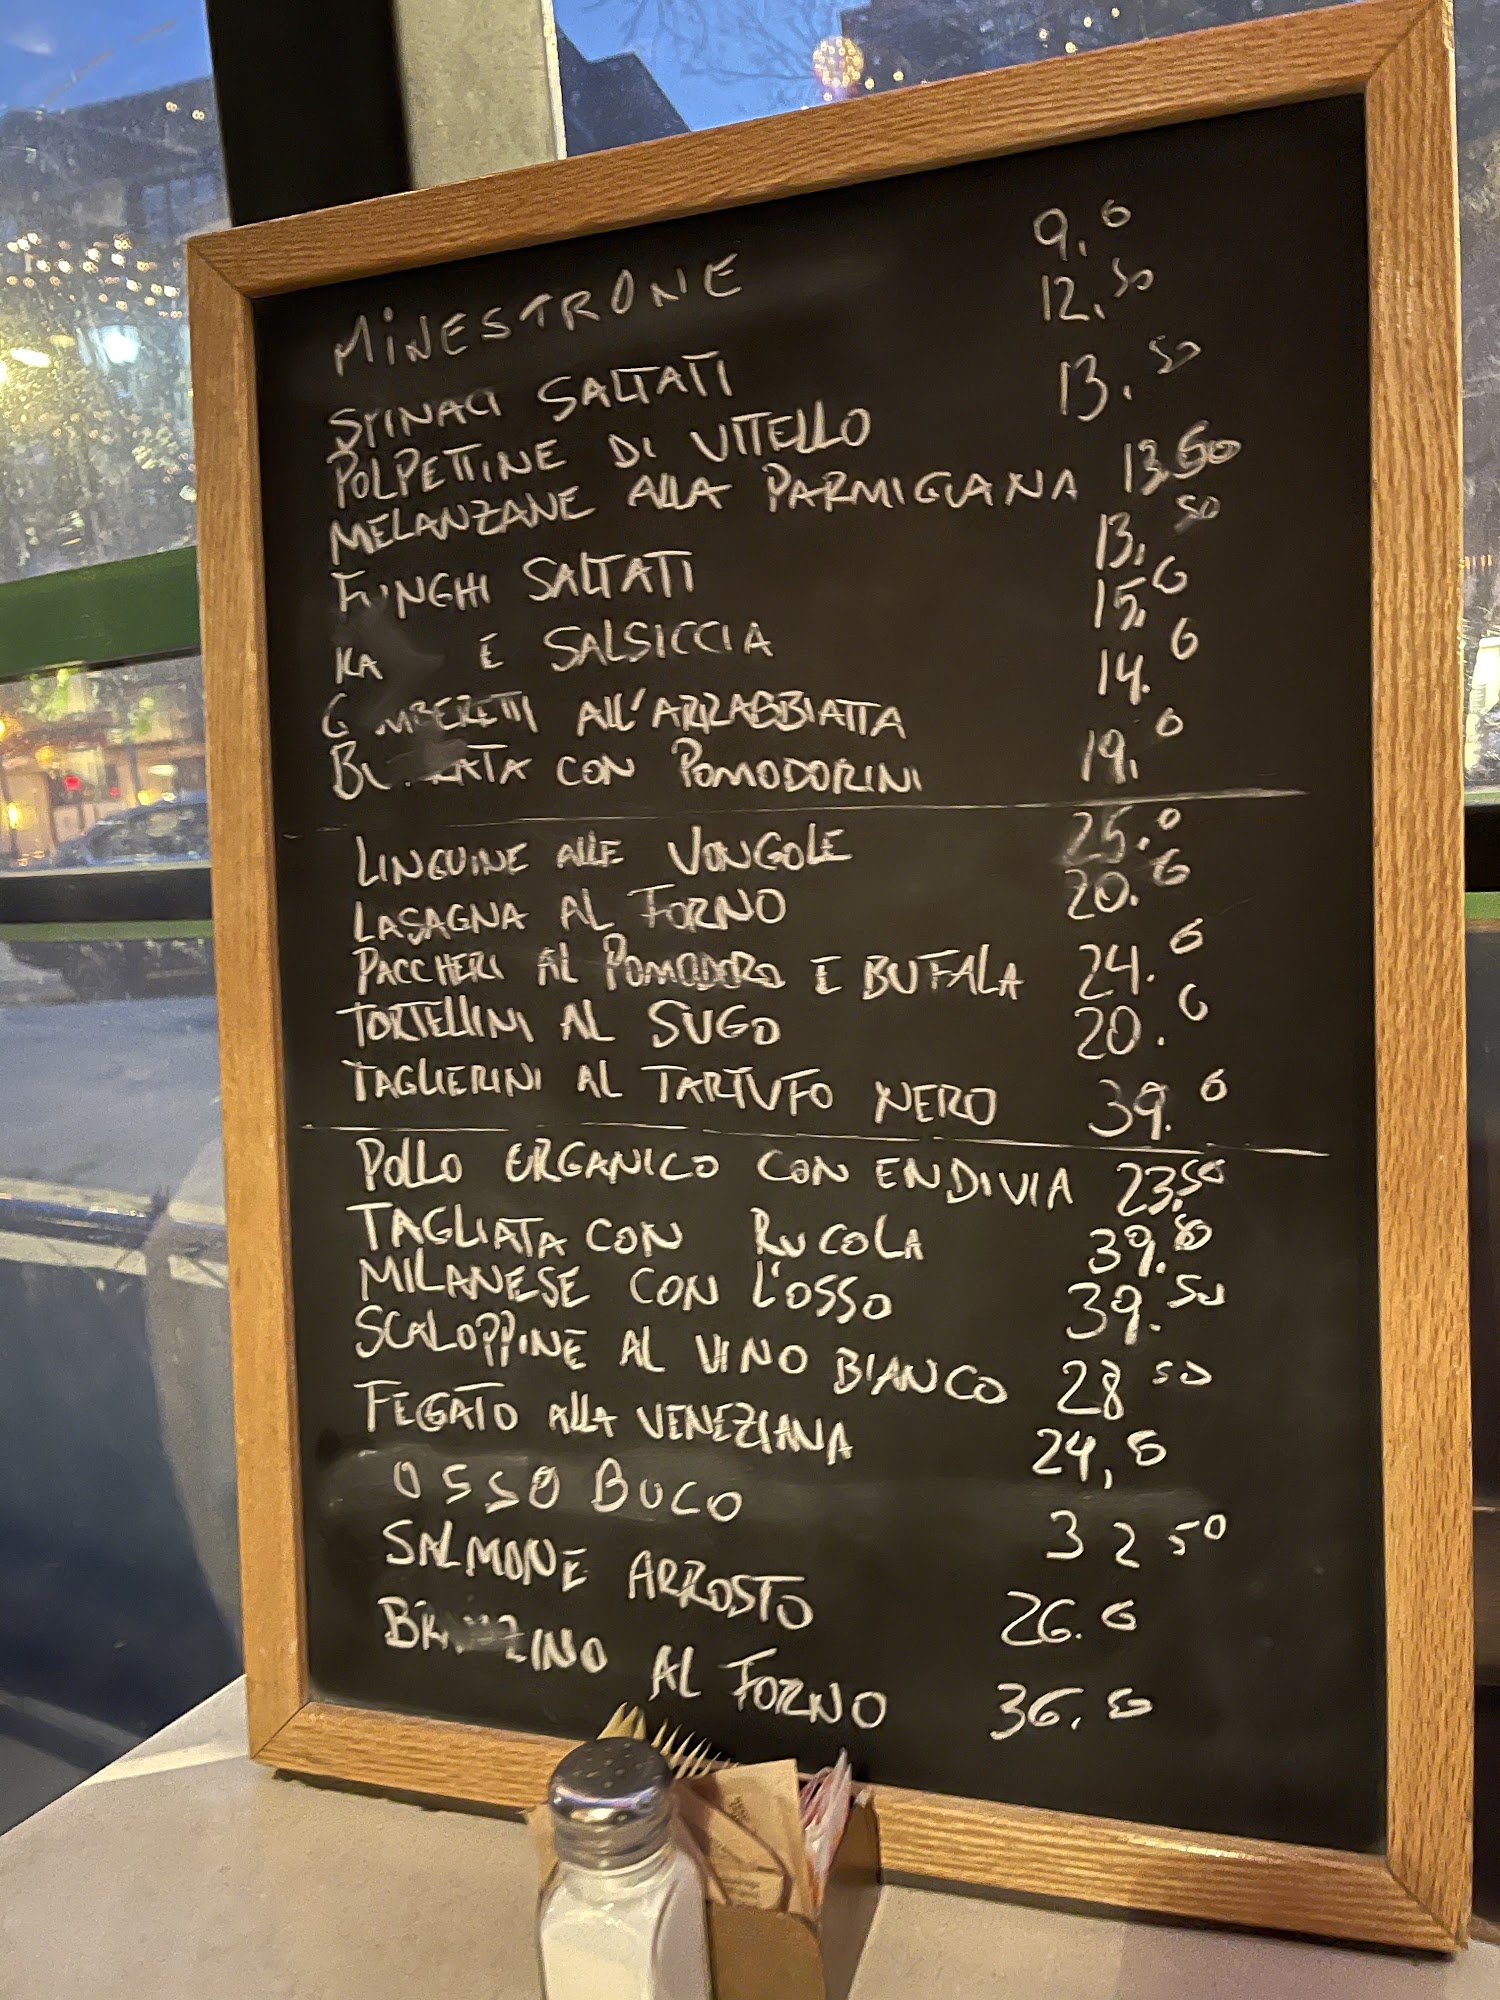 MINESTRONE 9.0
SPINACI SALTATI 12.50
POLPETTINE DI VITELLO 13.50
MELANZANE ALLA PARMIGIANA 13.50
FUNGHI SALTATI 13.50
E SALSICCIA 15.0
GAMBERETTI ALL'ARRABBIATA 14.0
BURRATA CON POMODORINI 19.0
LINGUINE ALLE VONGOLE 25.0
LASAGNA AL FORNO 20.0
PACCHERI AL POMODORO E BUFALA 24.0
TORTELLINI AL SUGO 20.0
TAGLIERINI AL TARTUFO NERO 39.0
POLLO ORGANICO CON ENDIVIA 23.50
TAGLIATA CON RUCOLA 39.50
MILANESE CON L'OSSO 39.50
SCALOPPINE AL VINO BIANCO 28 50
FEGATO ALLA VENEZIANA 24,0
OSSO BUCO 32 50
SALMONE ARROSTO 26.0
BRANZINO AL FORNO 36.50